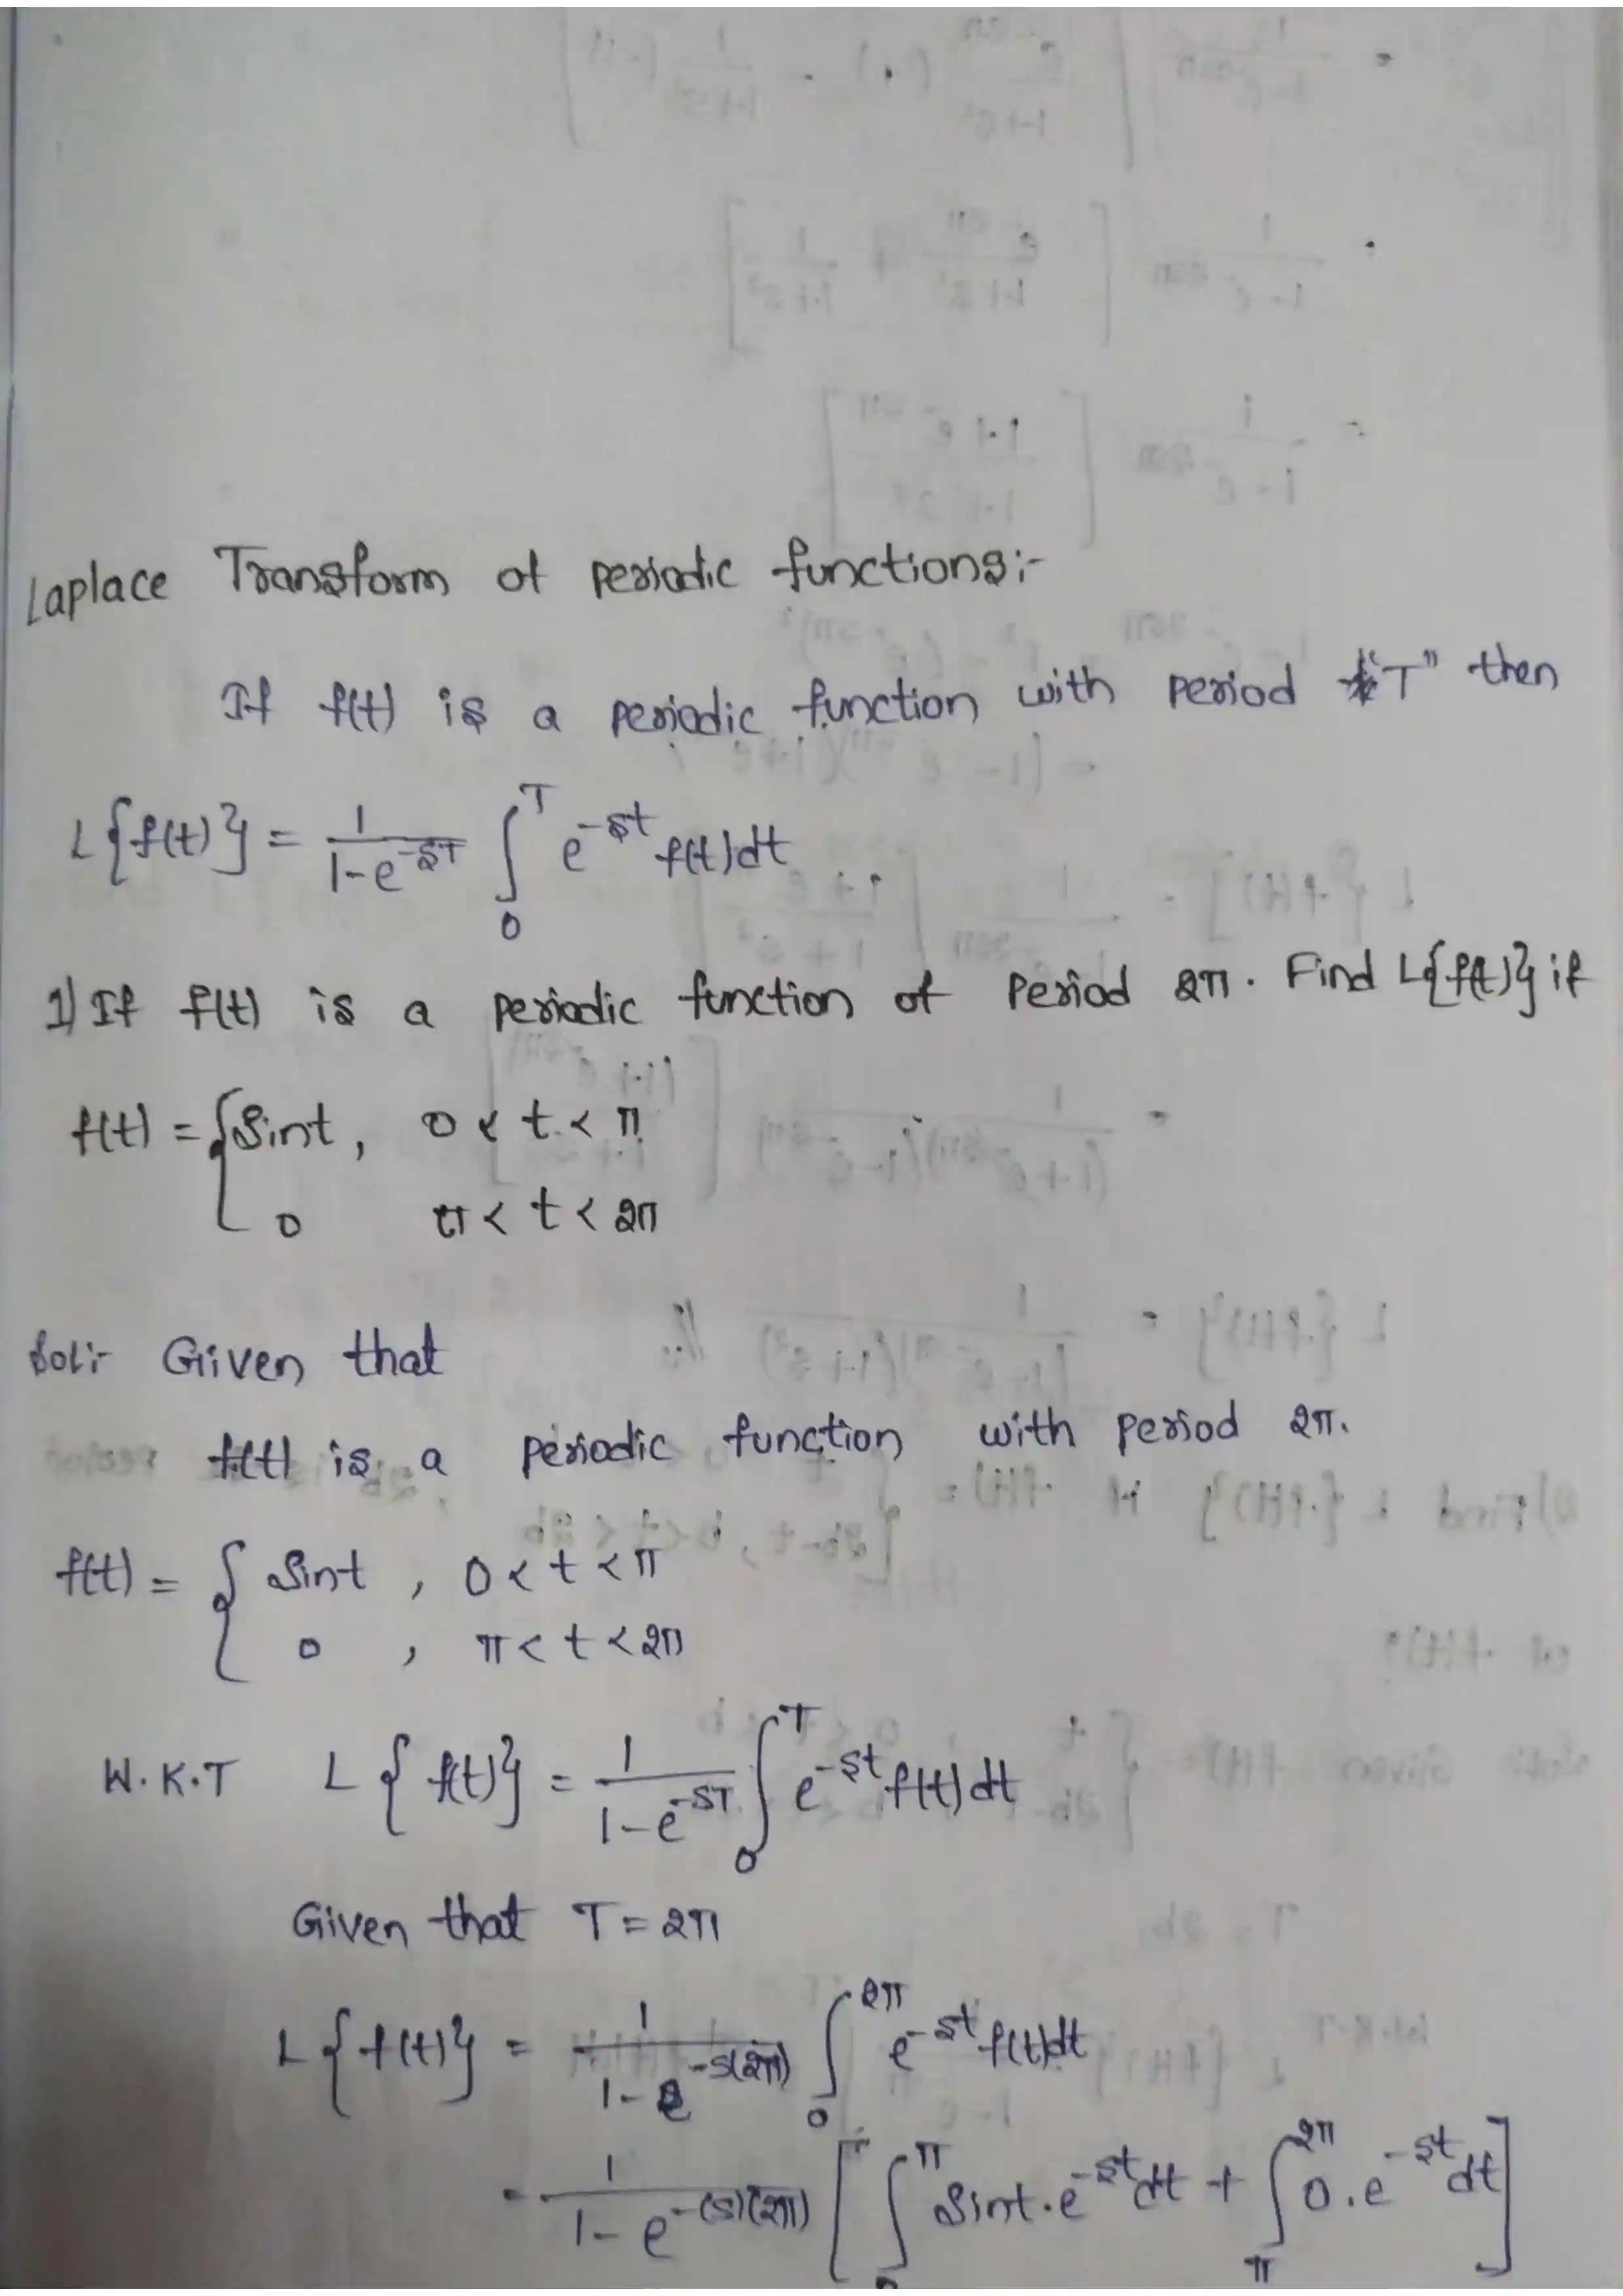 Laplace Transform of periodic functions:-
If f(t) is a periodic function with period "T" then
L{f(t)} = 1/(1-e^{-sT}) ∫_0^T e^{-st} f(t)dt
1) If f(t) is a periodic function of Period 2π. Find L{f(t)} if
f(t) = { Sint, 0 < t < π
0 π < t < 2π
Sol:- Given that
f(t) is a periodic function with period 2π.
f(t) = { Sint , 0 < t < π
0 , π < t < 2π
W.K.T L{f(t)} = 1/(1-e^{-sT}) ∫_0^T e^{-st} f(t)dt
Given that T = 2π
L{f(t)} = 1/(1-e^{-s(2π)}) ∫_0^{2π} e^{-st} f(t)dt
= 1/(1-e^{-(s)(2π)}) [ ∫_0^π Sint.e^{-st}dt + ∫_π^{2π} 0.e^{-st}dt ]